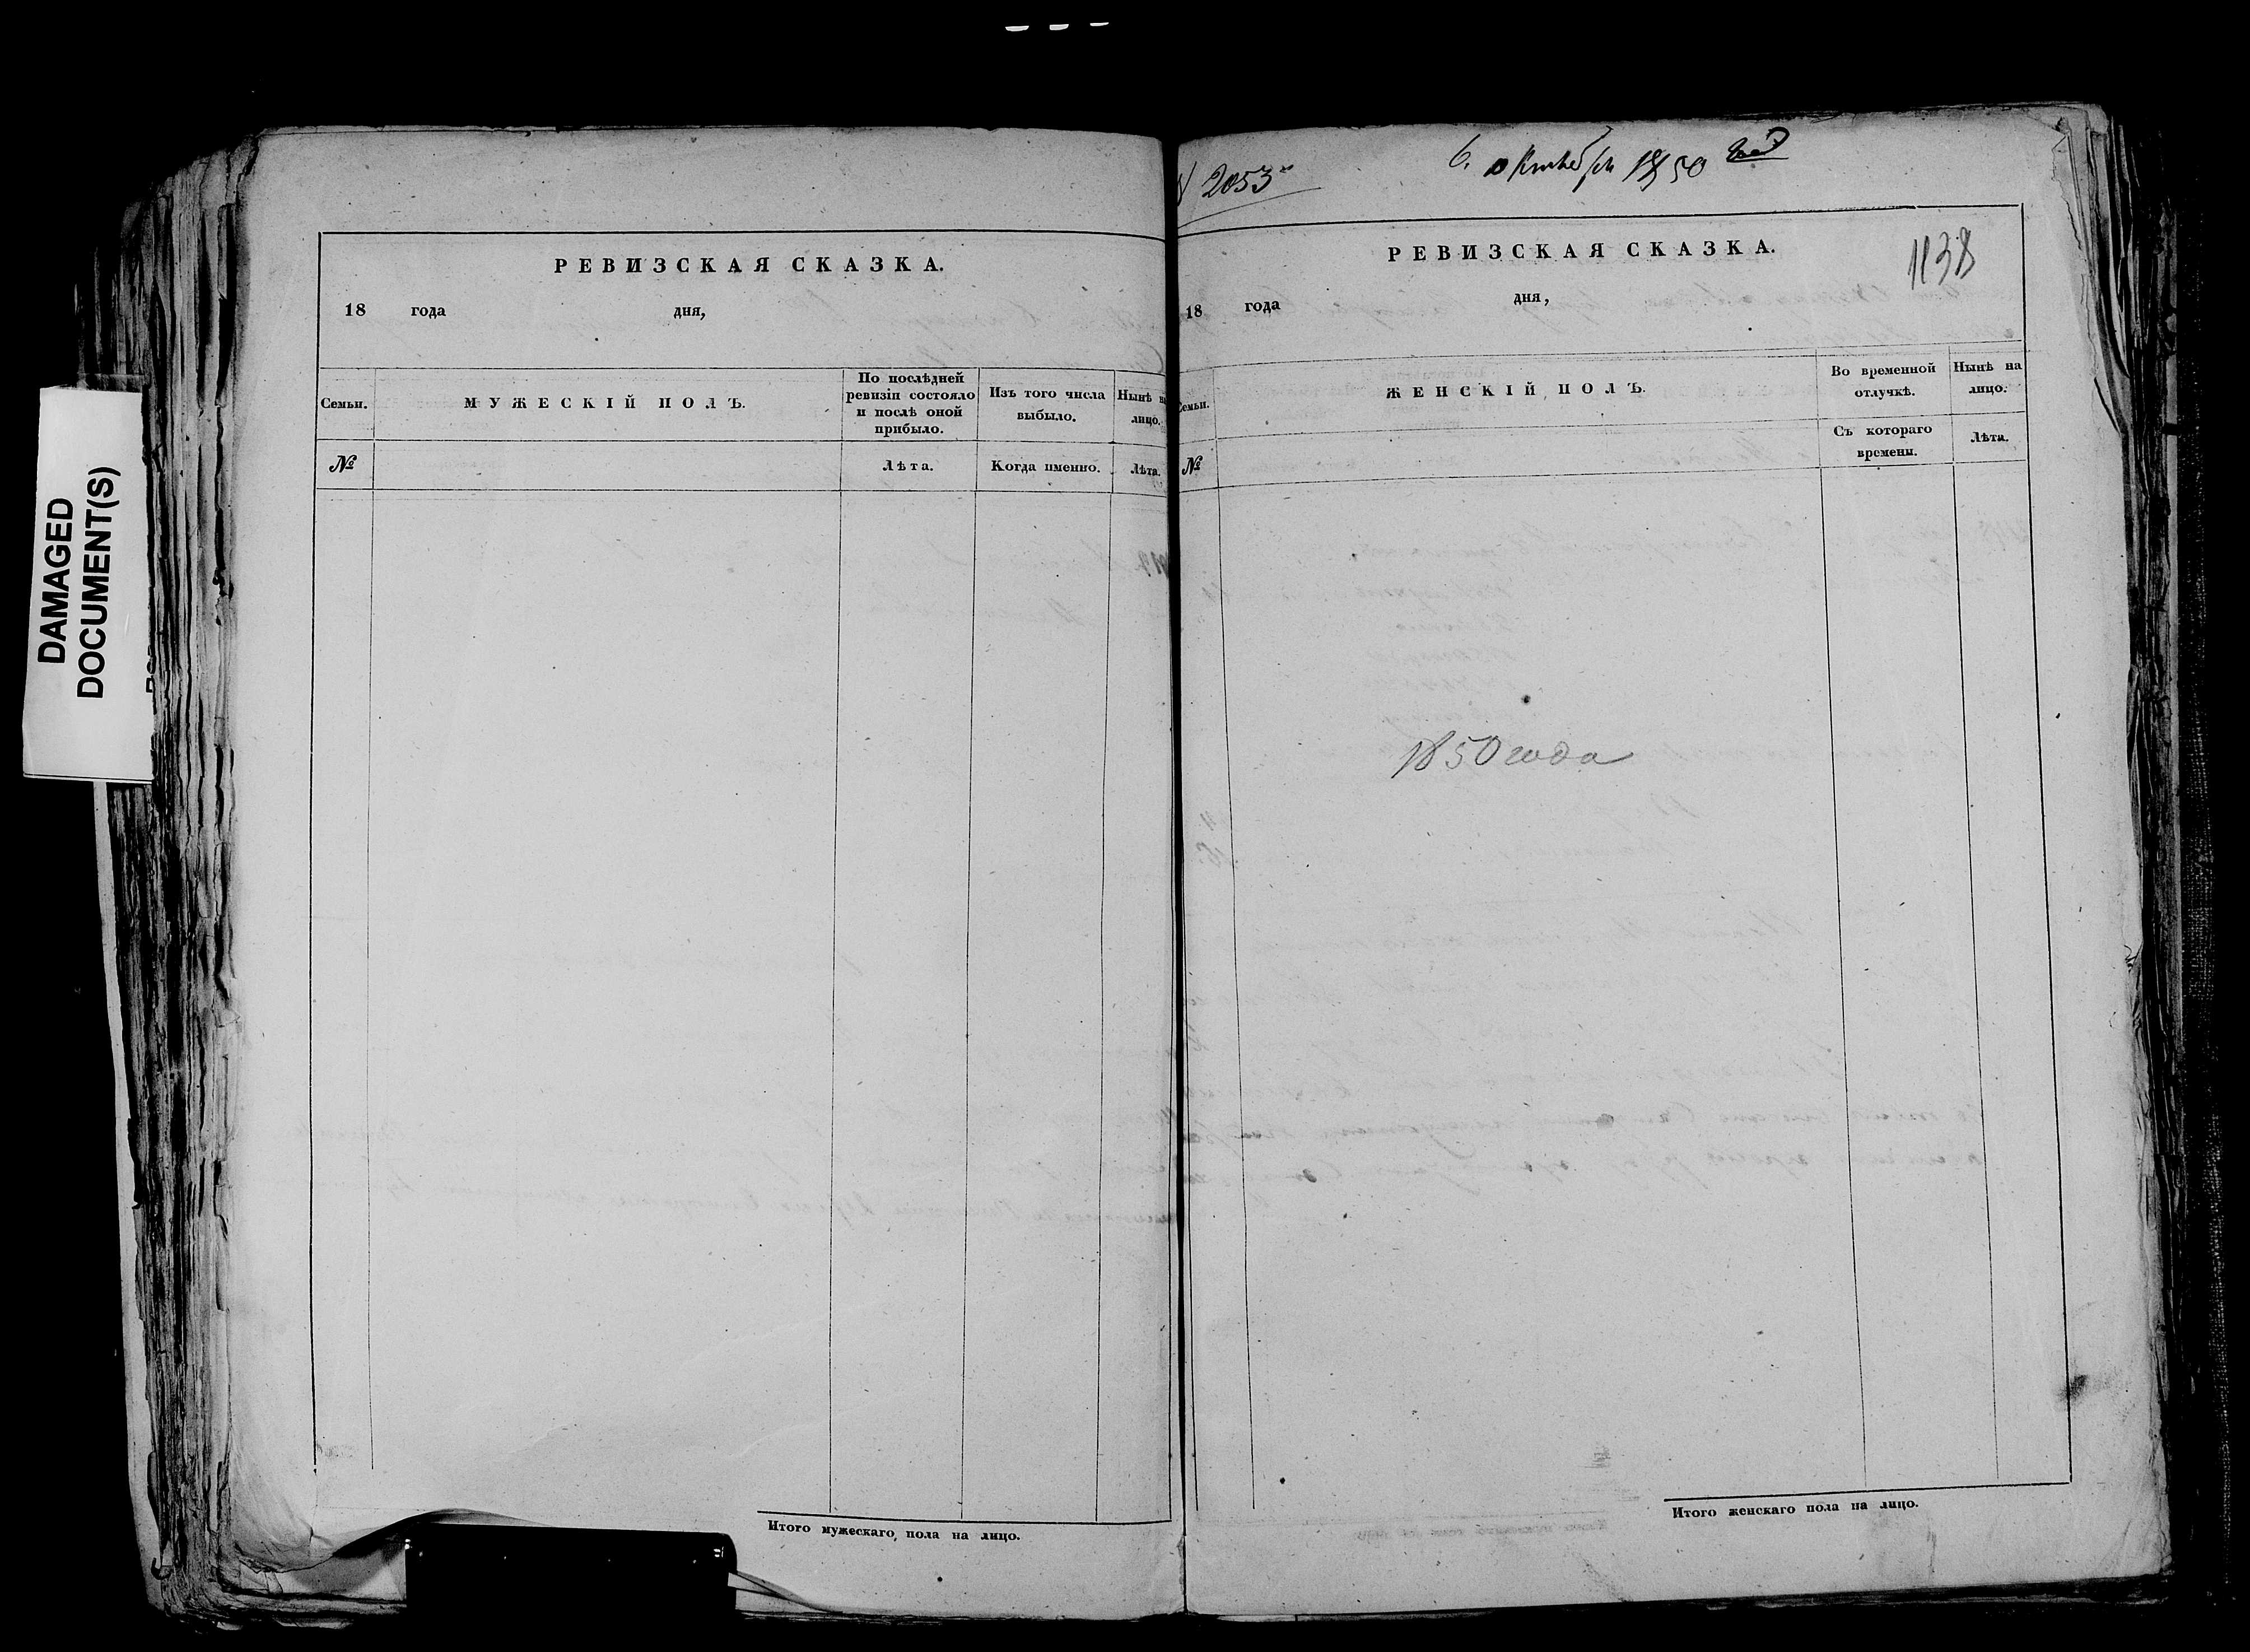 DAMAGED
DOCUMENT(S)
РЕВИЗСКАЯ СКАЗКА.
18 года дня,
Семьи. МУЖЕСКІЙ ПОЛЪ. По послѣдней ревизіи состояло и послѣ оной прибыло. Изъ того числа выбыло. Нынѣ на лицо.
№ Лѣта. Когда именно. Лѣта.
Итого мужескаго пола на лицо.
№ 2053
6. октября 1850
РЕВИЗСКАЯ СКАЗКА.
1138
18 года дня,
Семьи. ЖЕНСКІЙ ПОЛЪ. Во временной отлучкѣ. Нынѣ на лицо.
№ Съ котораго времени. Лѣта.
1850 года
Итого женскаго пола на лицо.